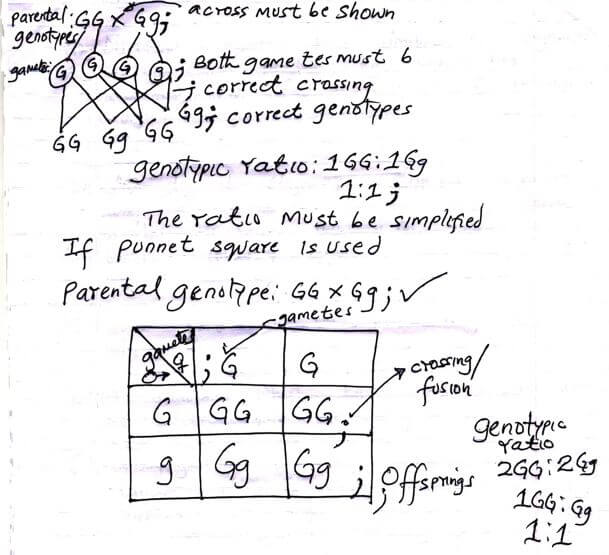 parental: GG x Gg; a cross must be shown
genotypes
gametes: G G G g ; Both gametes must b
; correct crossing
GG Gg GG Gg; correct genotypes
genotypic ratio: 1GG:1Gg
1:1;
The ratio must be simplified
If punnet square is used
Parental genotype: GG x Gg; ✓
gametes
gametes ; G G
G GG GG ; crossing/
fusion
g Gg Gg ; ; Offsprings
genotypic
ratio
2GG:2Gg
1GG:Gg
1:1